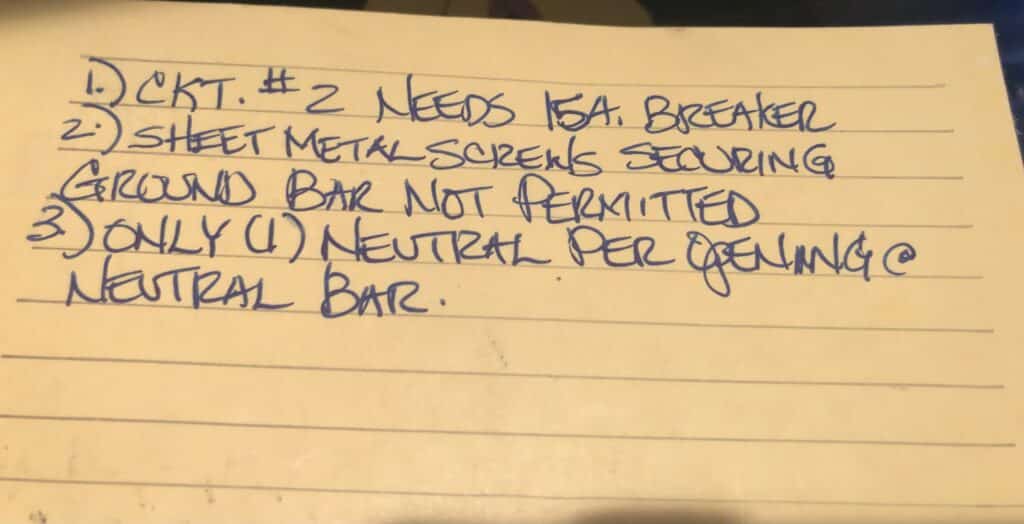 1.) CKT. #2 NEEDS 15A. BREAKER
2.) SHEET METAL SCREWS SECURING
GROUND BAR NOT PERMITTED
3.) ONLY (1) NEUTRAL PER OPENING @
NEUTRAL BAR.